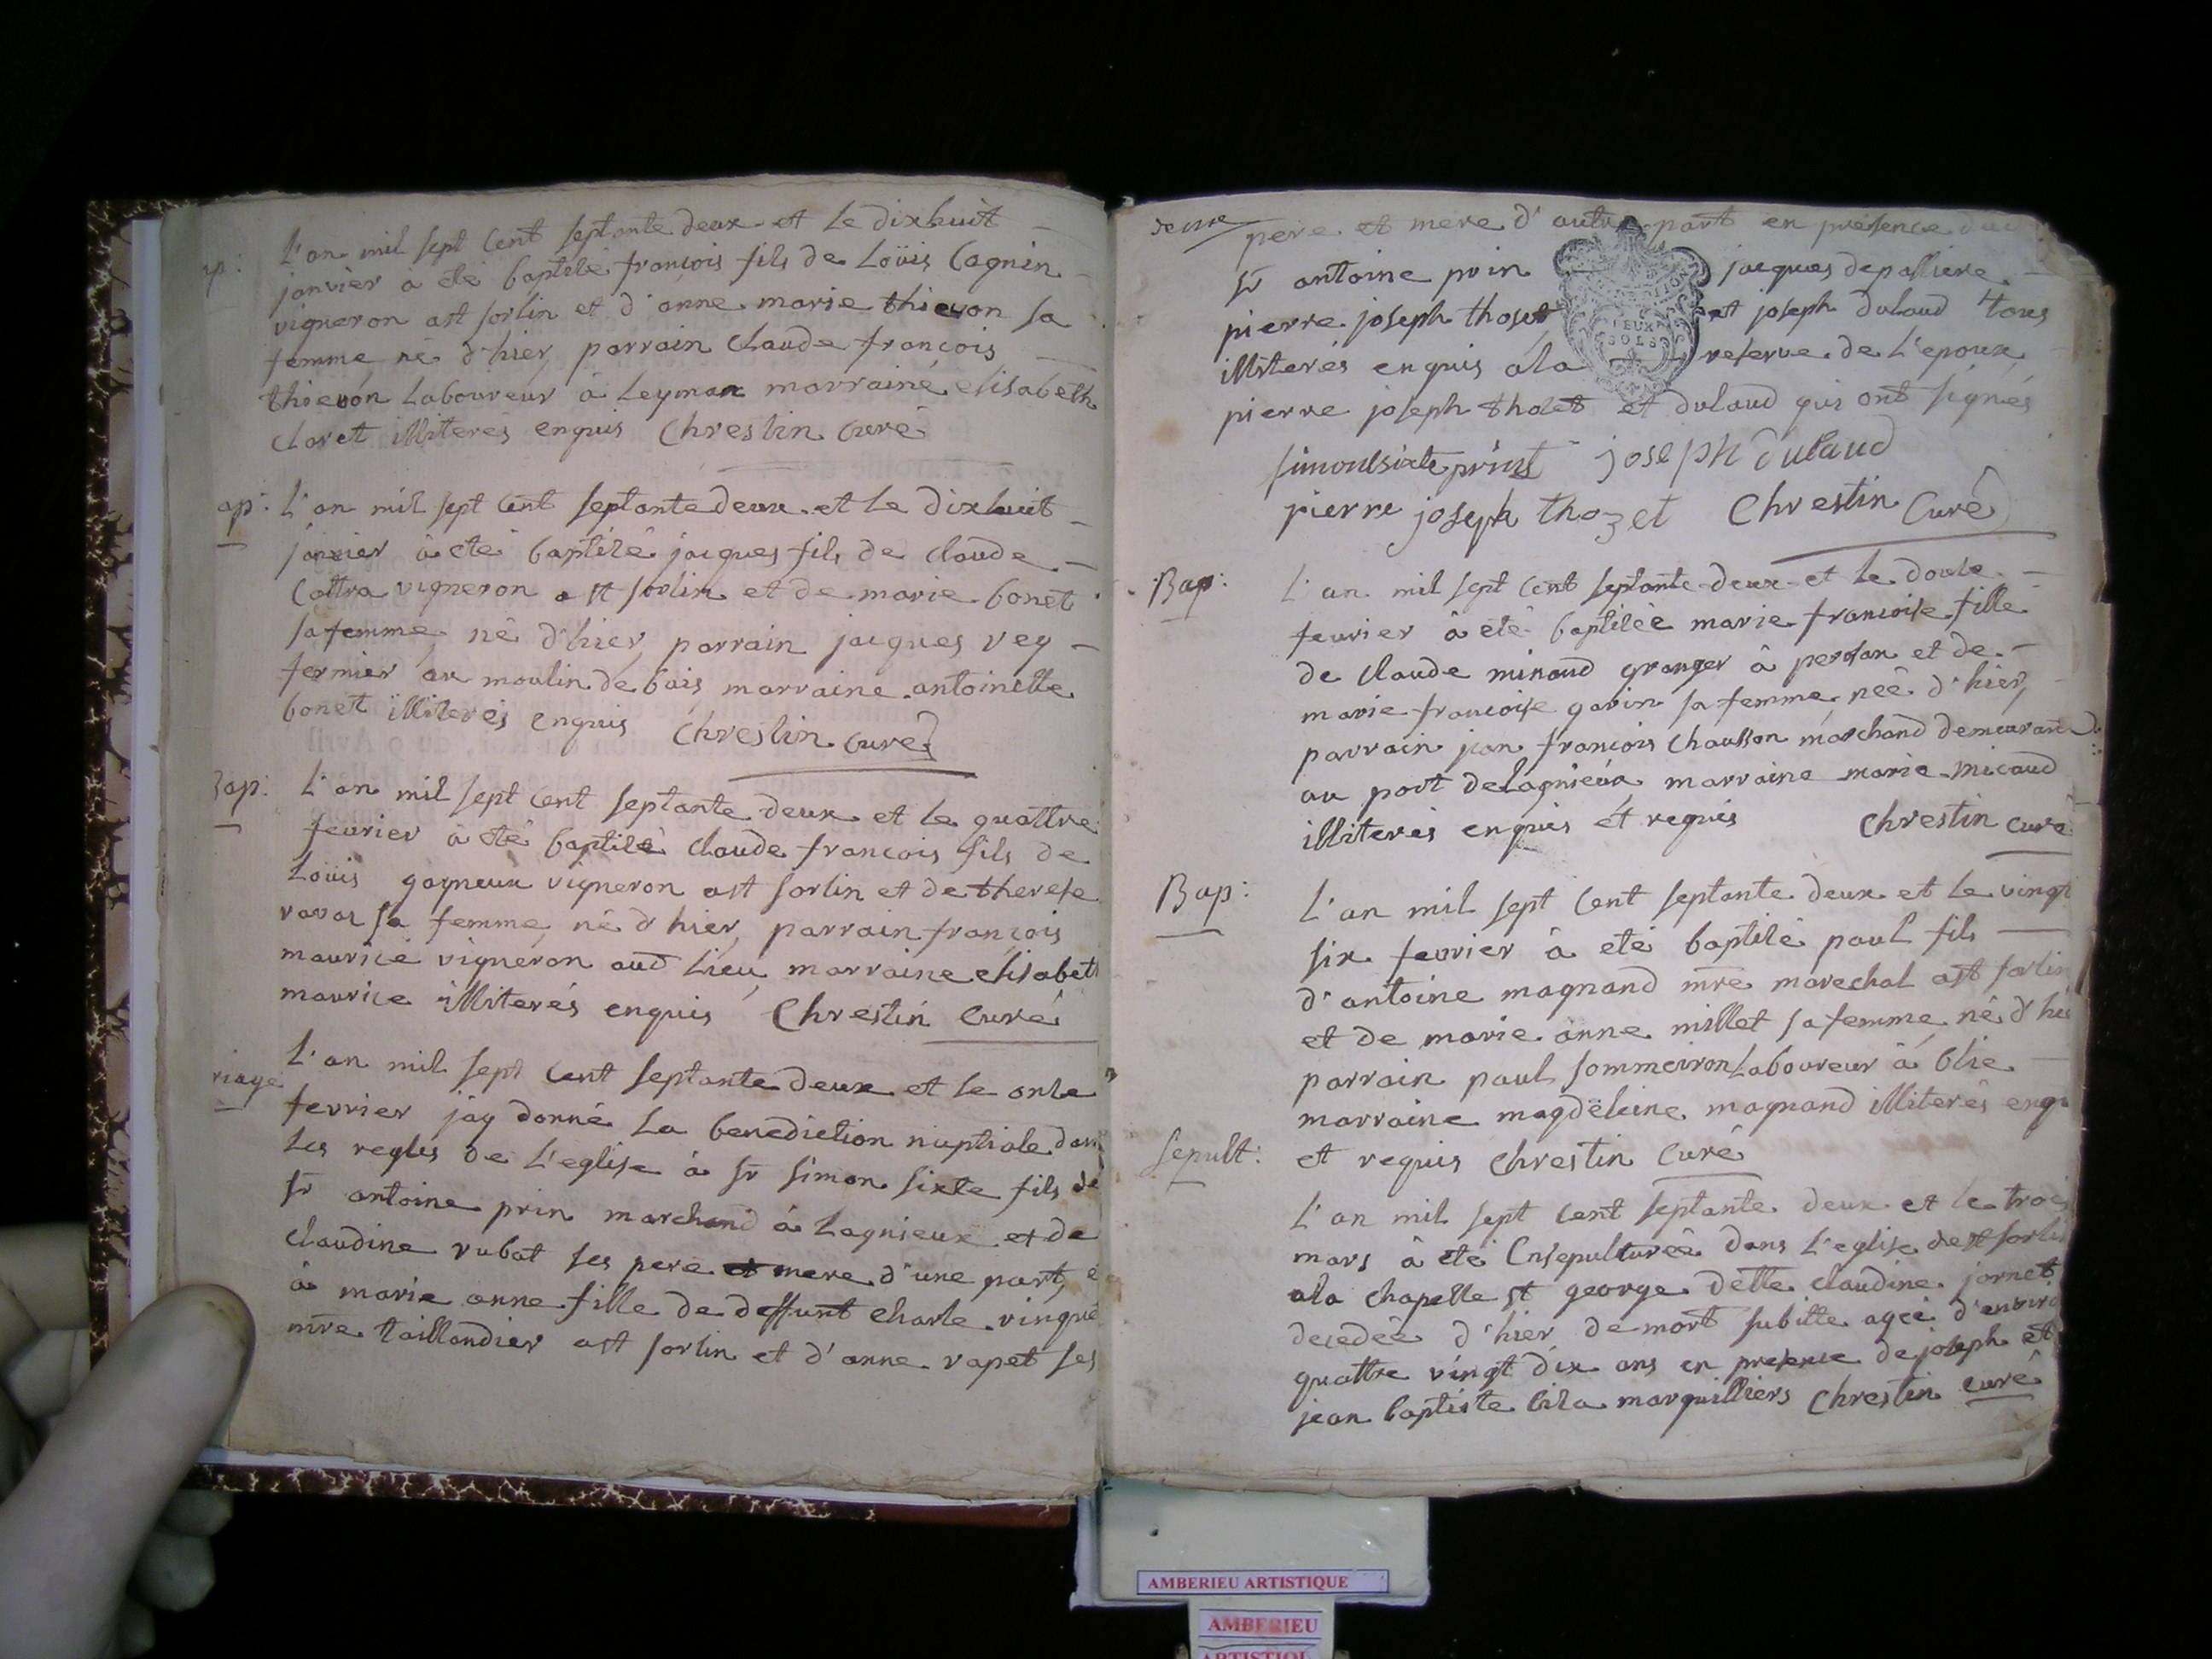 ap:
L'an mil sept cent septante deux et le dixhuit
janvier à eté baptisé françois fils de Loüis Cagnin
vigneron a st sorlin et d'anne marie thievon sa
femme né d'hier, parrain claude françois
thievon Laboureur à Leyman marraine elisabeth
cloret illiterés enquis Chrestin curé
ap:
L'an mil sept cent septante deux et le dixhuit
janvier à eté baptisé jacques fils de claude
Cottra vigneron a st sorlin et de marie bonet
sa femme, né d'hier, parrain jacques vey
fermier au moulin de bais marraine antoinette
bonet illiterés enquis Chrestin curé
Bap:
L'an mil sept cent septante deux et le quattre
fevrier à eté baptisé claude françois fils de
Loüis gagneux vigneron a st sorlin et de therese
ravat sa femme, né d'hier, parrain françois
maurice vigneron aud lieu, marraine elisabet
maurice illiterés enquis Chrestin curé
riage
L'an mil sept cent septante deux et le onze
fevrier j'ay donné la benediction nuptiale dans
les regles de L'eglise à sr simon sixte fils de
sr antoine prin marchand à Lagnieux et de
claudine rubat ses pere et mere d'une part, e
à marie anne fille de deffunt charle vinqué
mre taillandier a st sorlin et d'anne rapet ses
deux
pere et mere d'autre part en présence dud
sr antoine prin jacques depalliere
pierre joseph thoset et joseph dulaud tous
illiterés enquis ala reserve de L'epoux
pierre joseph tholet et dulaud qui ont signés
simont sixte print joseph dulaud
pierre joseph thozet Chrestin Curé
DEUX
SOLS
Bap:
L'an mil sept cent septante deux et le douze
fevrier à eté baptisée marie françoise fille
de claude minaud granger à persan et de
marie françoise garin sa femme née d'hier,
parrain jean françois chausson marchand demeurant
au port de Lagnieux marraine marie micaud
illiterés enquis et requis Chrestin curé
Bap:
L'an mil sept cent septante deux et le vingt
six fevrier à eté baptisé paul fils
d'antoine magnand mre marechal a st sorlin
et de marie anne millet sa femme, né d'hie
parrain paul sommeiron Laboureur à blie
marraine magdeleine magnand illiterés enqu
et requis Chrestin Curé
Sepult:
L'an mil sept cent septante deux et le trois
mars à eté Ensepulturée dans L'eglise de st sorlin
ala chapelle st george delle claudine jornet
decedée d'hier de mort subitte agée d'enviro
quattre vingt dix ans en presence de joseph et
jean baptiste bila marguilliers Chrestin curé
AMBERIEU ARTISTIQUE
AMBERIEU
ARTISTIQU